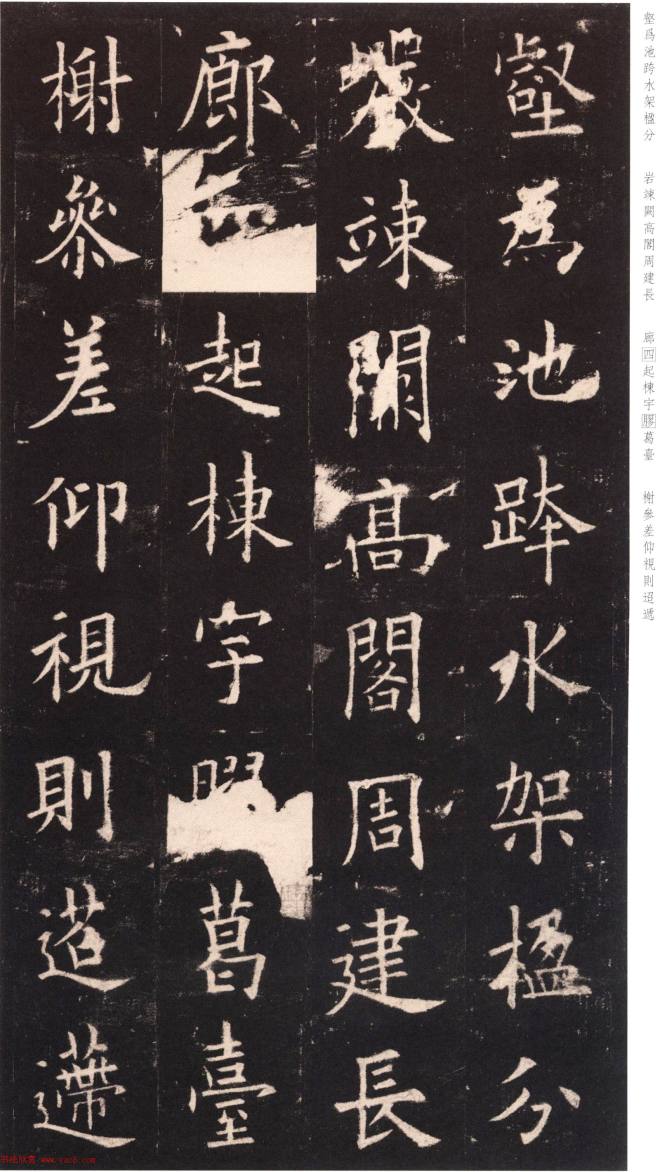 壑爲池跨水架楹分
巖竦闕高閣周建長
廊四起棟宇膠葛臺
榭參差仰視則迢遰
壑爲池跨水架楹分 岩竦闕高閣周建長 廊四起棟宇膠葛臺 榭參差仰視則迢遞
书法欣赏 www.yac8.com